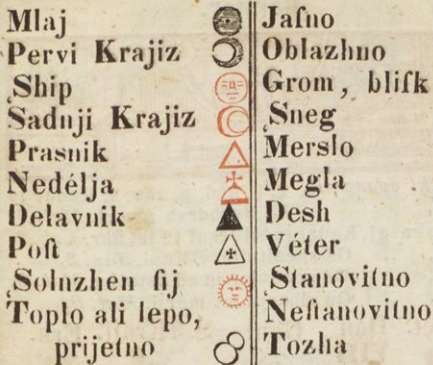 Mlaj
Pervi Krajiz
Ship
Sadnji Krajiz
Prasnik
Nedélja
Delavnik
Poſt
Solnzhen ſij
Toplo ali lepo,
prijetno
Jaſno
Oblazhno
Grom, bliſk
Sneg
Merslo
Megla
Desh
Véter
Stanovitno
Neſtanovitno
Tozha